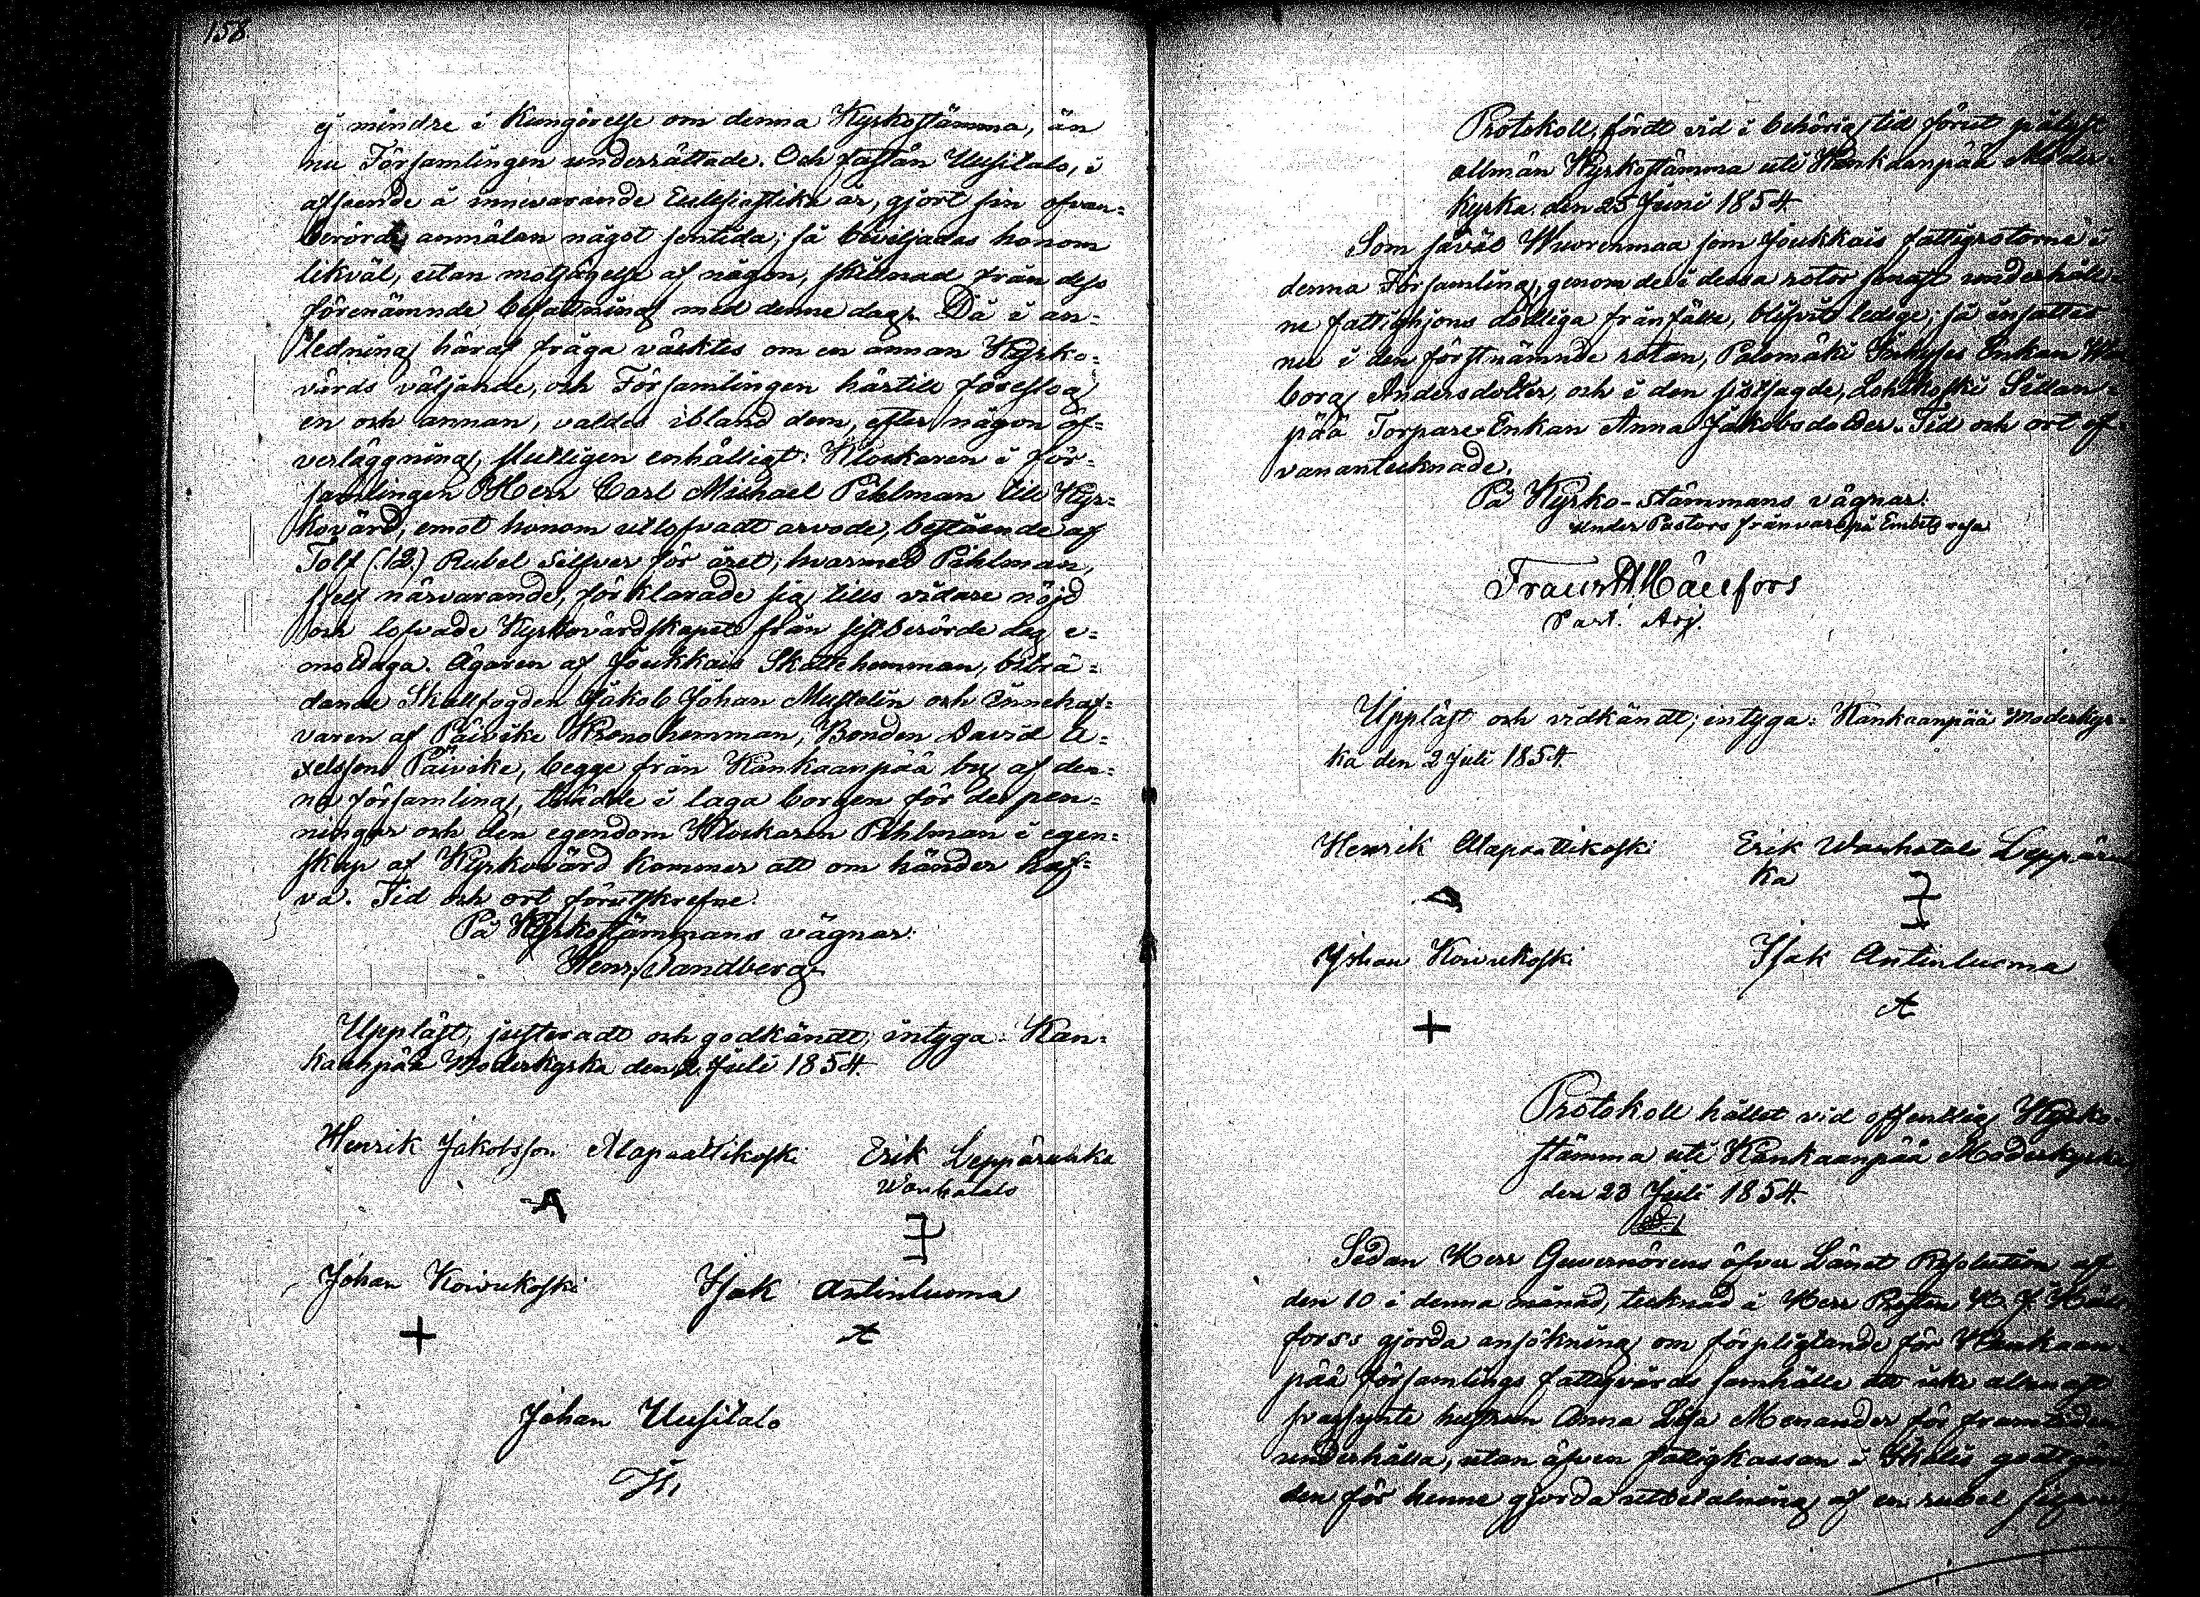 158.
ej mindre i Kungörelse om denna Kyrkostämma, än
nu Församlingen underrättade. Och fastän Uusitalo, i
afseende å innevarande Ecklesiastika år, gjort sin ofvan=
berörde anmälan något sentida; så beviljades honom
likväl, utan motsägelse af någon, skilnad från dess
förenämnde befattning med denne dag. Då i an=
ledning häraf fråga väcktes om en annan Kyrko=
värds väljande, och Församlingen härtill föreslog
en och annan, valdes ibland dem, efter någon öf=
verläggning, slutligen enhälligt: Klockaren i för=
samlingen Herr Carl Michael Pihlman till Kyr=
kovärd, emot honom utlofvadt arvode, bestående af
Tolf (12.) Rubel Silfver för året; hvarmed Pihlman,
sjelf närvarande, förklarade sig tills vidare nöjd
och lofvade Kyrkovärdskapet från sistberörde dag e=
mottaga. Ägaren af Joukkais Skattehemman, biträ=
dande Skallfogden Jakob Johan Mustelin och Innehaf=
varen af Päivike Kronohemman, Bonden David A=
xelsson Päivike, begge från Kankaanpää by af den=
na församling, trädde i laga borgen för de pen=
ningar och den egendom Klockaren Pihlman i egen=
skap af Kyrkovärd kommer att om händer haf=
va. Tid och ort förutskrefne.
På Kyrkostämmans vägnar:
Henr. Sandberg.
Uppläst, justeradt och godkändt, intyga: Kan=
kaanpää Moderkyrka den 2 Juli 1854.
Henrik Jakobsson Alapaattikoski Erik Leppäruhka
Wanhatalo
Johan Koivukoski Isak Antinluoma
+ A
Johan Uusitalo
Protokoll, fördt vid i behörig tid förut pålyst
allmän Kyrkostämma uti Kankaanpää Moder=
kyrka den 25 Juni 1854.
Som såväl Wuorenmaa som Joukkais fattigrotorne i
denna Församling, genom de i dessa rotor senast underhåll=
ne fattighjons dödliga frånfälle, blifvit ledige; så insattes
nu i den förstnämnde rotan, Palomäki Inhyses Enkan
borg Andersdotter, och i den sistsagde, Lohikoski Sillan=
pää Torpare Enkan Anna Jakobsdotter. Tid och ort of=
vanantecknade.
På Kyrko-stämmans vägnar:
under Pastors frånvaro på Embets resa
Frans Hällfors
Past. Adj.
Uppläst och vidkändt; intyga: Kankaanpää Moderkyr=
ka den 2 Juli 1854.
Henrik Alapaattikoski Erik Wanhatalo Leppäruh
ka
Johan Koivukoski Isak Antinluoma
+ A
Protokoll hållet vid offentlig Kyrko=
stämma uti Kankaanpää Moderkyrka
den 23 Juli 1854.
Sedan Herr Guvernörens öfver Länet Resolution af
den 10 i denna månad, tecknad å Herr Prosten Häll
forss gjorda ansökning om förpligtande för Kankaan=
pää församlings fattigvårds samhälle att icke allenast
svagsynte hustrun Anna Lisa Menander för framtiden
underhålla, utan äfven fattigkassan i Ikalis godtgöra
den för henne gjorda utbetalning af en rubel